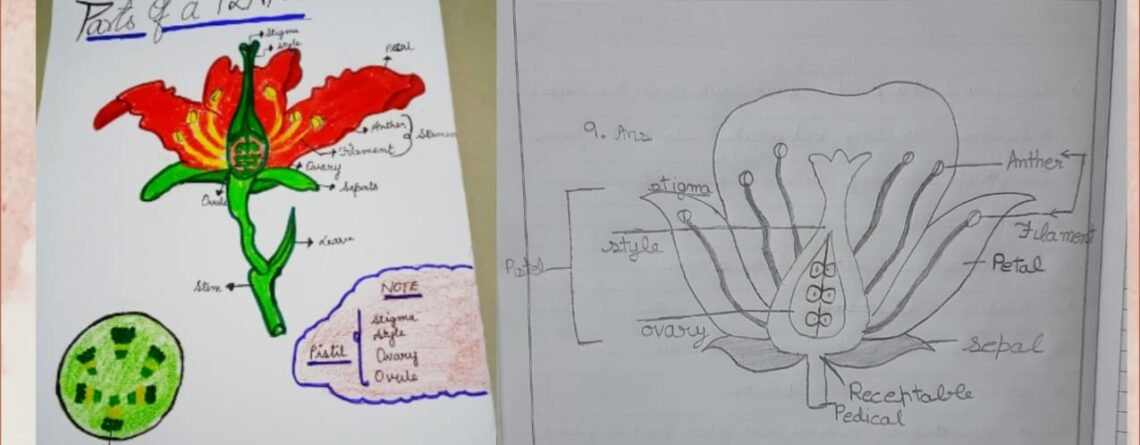 Parts of a
Stigma
Style
Petal
Anther
Stamen
Filament
Ovary
Sepals
Ovule
Leave
Stem
NOTE
Pistil
Stigma
Style
Ovary
Ovule
9. Ans
Anther
stigma
Filament
style
Pistel
Petal
ovary
sepal
Receptable
Pedical